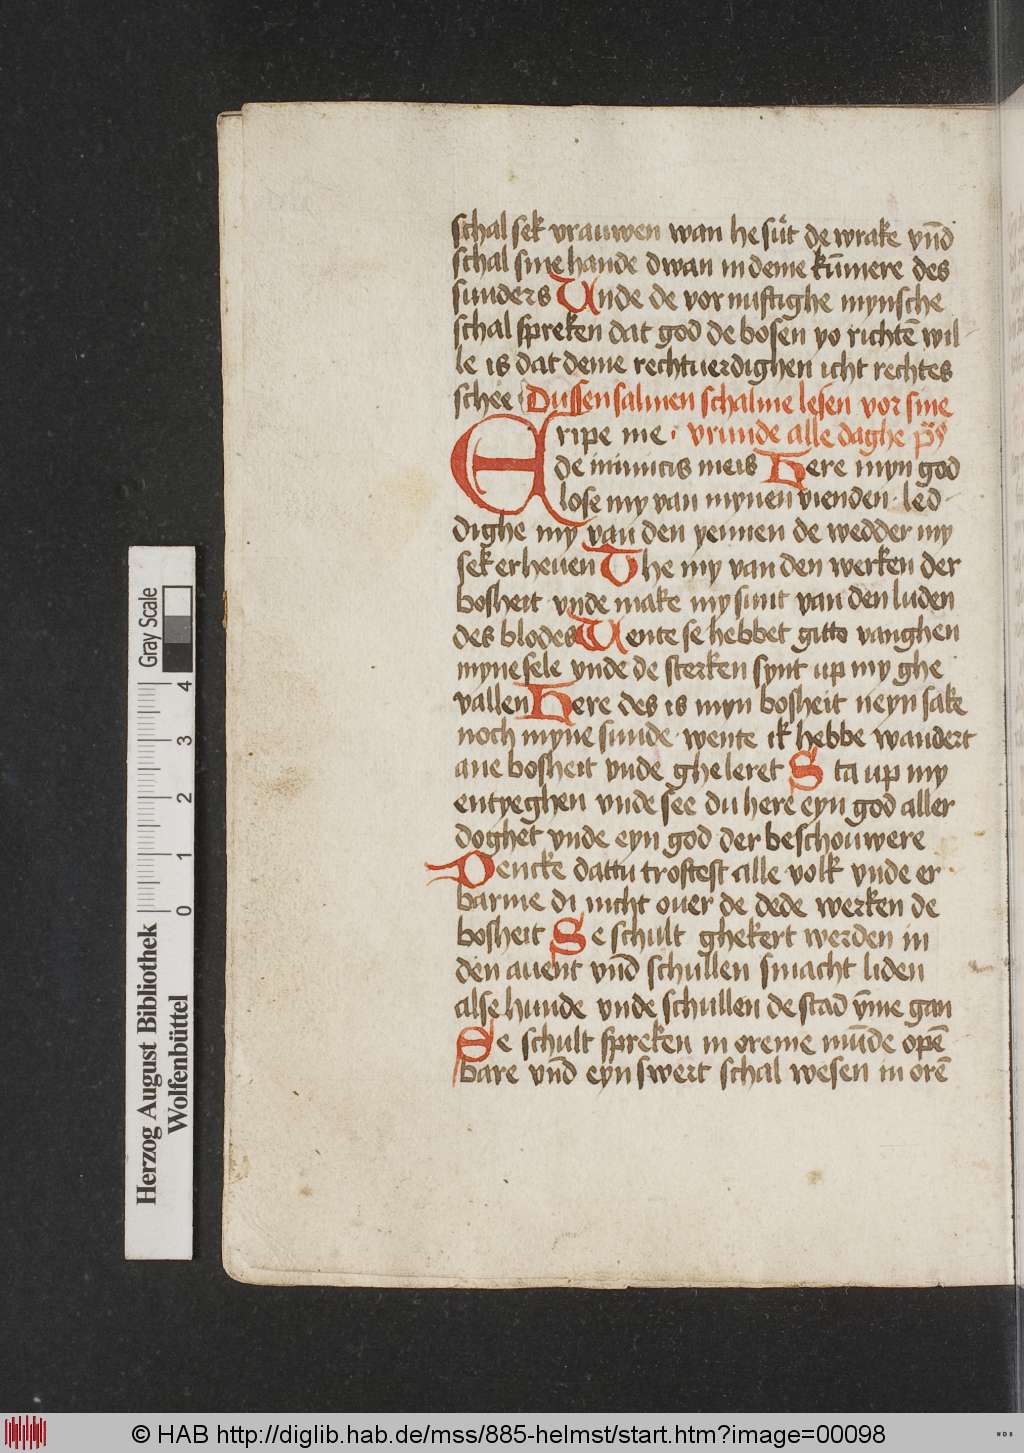 schal sek vrauwen wan he sut̉ de wrake vn̄d
schal sine hande dwan in deme kūmere des
sunders Vnde de vornuftighe mynsche
schal spreken dat god de bosen yo richtē wil
le is dat deme rechtuerdighen icht rechtes
schee Dussen salmen schalme lesen vor sine
Eripe me · vrunde alle daghe ps̄
de inimicis meis Here myn god
lose my van mynen vienden · led
dighe my van den yennen de wedder my
sek erheuen The my van den werken der
bosheit vnde make my sunt van den luden
des blodes Wente se hebbet gitto vanghen
myne sele vnde de sterken synt up my ghe
vallen Here des is myn bosheit neyn sake
noch myne sunde · wente ik hebbe wandert
ane bosheit vnde gheleret Sta up my
entyeghen vnde see du here eyn god aller
doghet vnde eyn god der beschouwere
Dencke dattu trostest alle volk vnde er
barme di nicht ouer de dede werken de
bosheit Se schult ghekert werden in
den auent vn̄d schullen smacht liden
alse hunde vnde schullen de stad v̄me gan
Se schult spreken in oreme mūde opē
bare vn̄d eyn swert schal wesen in orē
Herzog August Bibliothek
Wolfenbüttel
0 1 2 3 4
Gray Scale
© HAB http://diglib.hab.de/mss/885-helmst/start.htm?image=00098